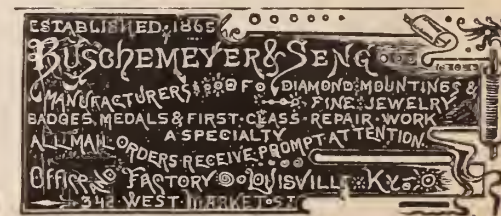 ESTABLISHED, 1865
BUSCHEMEYER & SENG
MANUFACTURERS OF DIAMOND MOUNTINGS &
FINE JEWELRY
BADGES, MEDALS & FIRST-CLASS-REPAIR-WORK
A SPECIALTY
ALL MAIL-ORDERS-RECEIVE-PROMPT-ATTENTION.
OFFICE AND FACTORY LOUISVILLE KY.
WEST MARKET ST